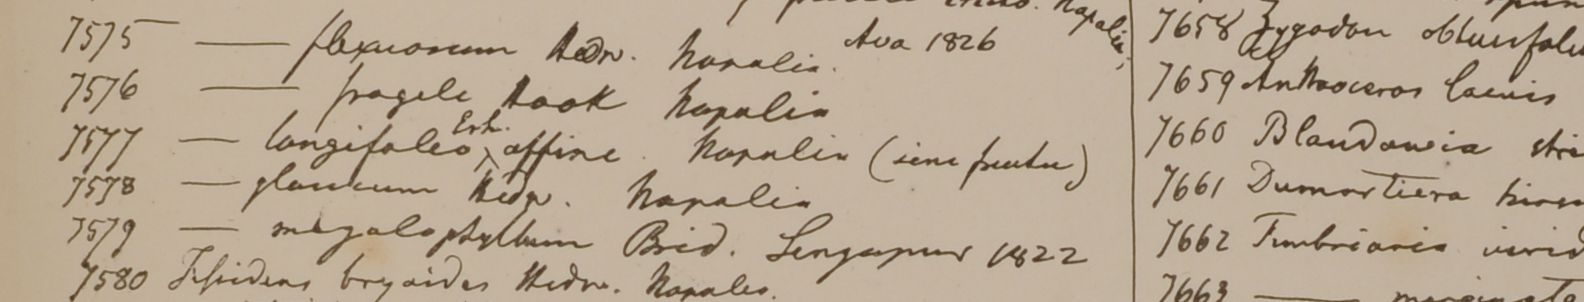 Napalia,
7575 — flexuosum Hedw. Napalia. Ava 1826
7576 — fragile Hook Napalia
7577 — longifolio Erh. affine. Napalia (sine fructu)
7578 — glaucum Hedw. Napalia
7579 — megalophyllum Brid. Singapur 1822
7580 Fissidens bryoides Hedw. Napalia.
7658 Zygodon obtusifoliu
7659 Anthoceros laevis
7660 Blandowia stri
7661 Dumortiera hirsu
7662 Fimbriaria virid
7663 —